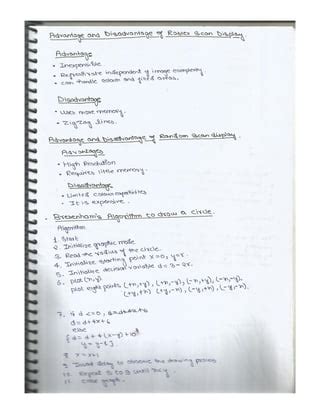 Advantage and Disadvantage of Raster Scan Display
Advantage
• Inexpensive
• Refresh rate independent of image complexity
• can handle colour and filled areas.
Disadvantage
• Uses more memory.
• ZigZag lines.
Advantage and Disadvantage of Random Scan display.
Advantages
• High Resolution
• Requires little memory.
Disadvantage
• Limited colour capabilities
• It is expensive.
• Bresenham's Algorithm to draw a circle.
Algorithm
1. Start
2. Initialize graphic mode
3. Read the radius of the circle.
4. Initialize starting point x=0, y=r.
5. Initialize decision variable d = 3-2r.
6. plot (x,y)
plot eight points (+x,+y), (+x,-y), (-x,+y), (-x,-y),
(+y,+x), (+y,-x), (-y,+x), (-y,-x).
7. if d<=0,
d=d+4x+6
else
{ d=d+4(x-y)+10
y=y-1 }
8. x=x+1
9. Insert delay to observe the drawing process
10. Repeat 5 to 9 until x<y.
11. close graph.